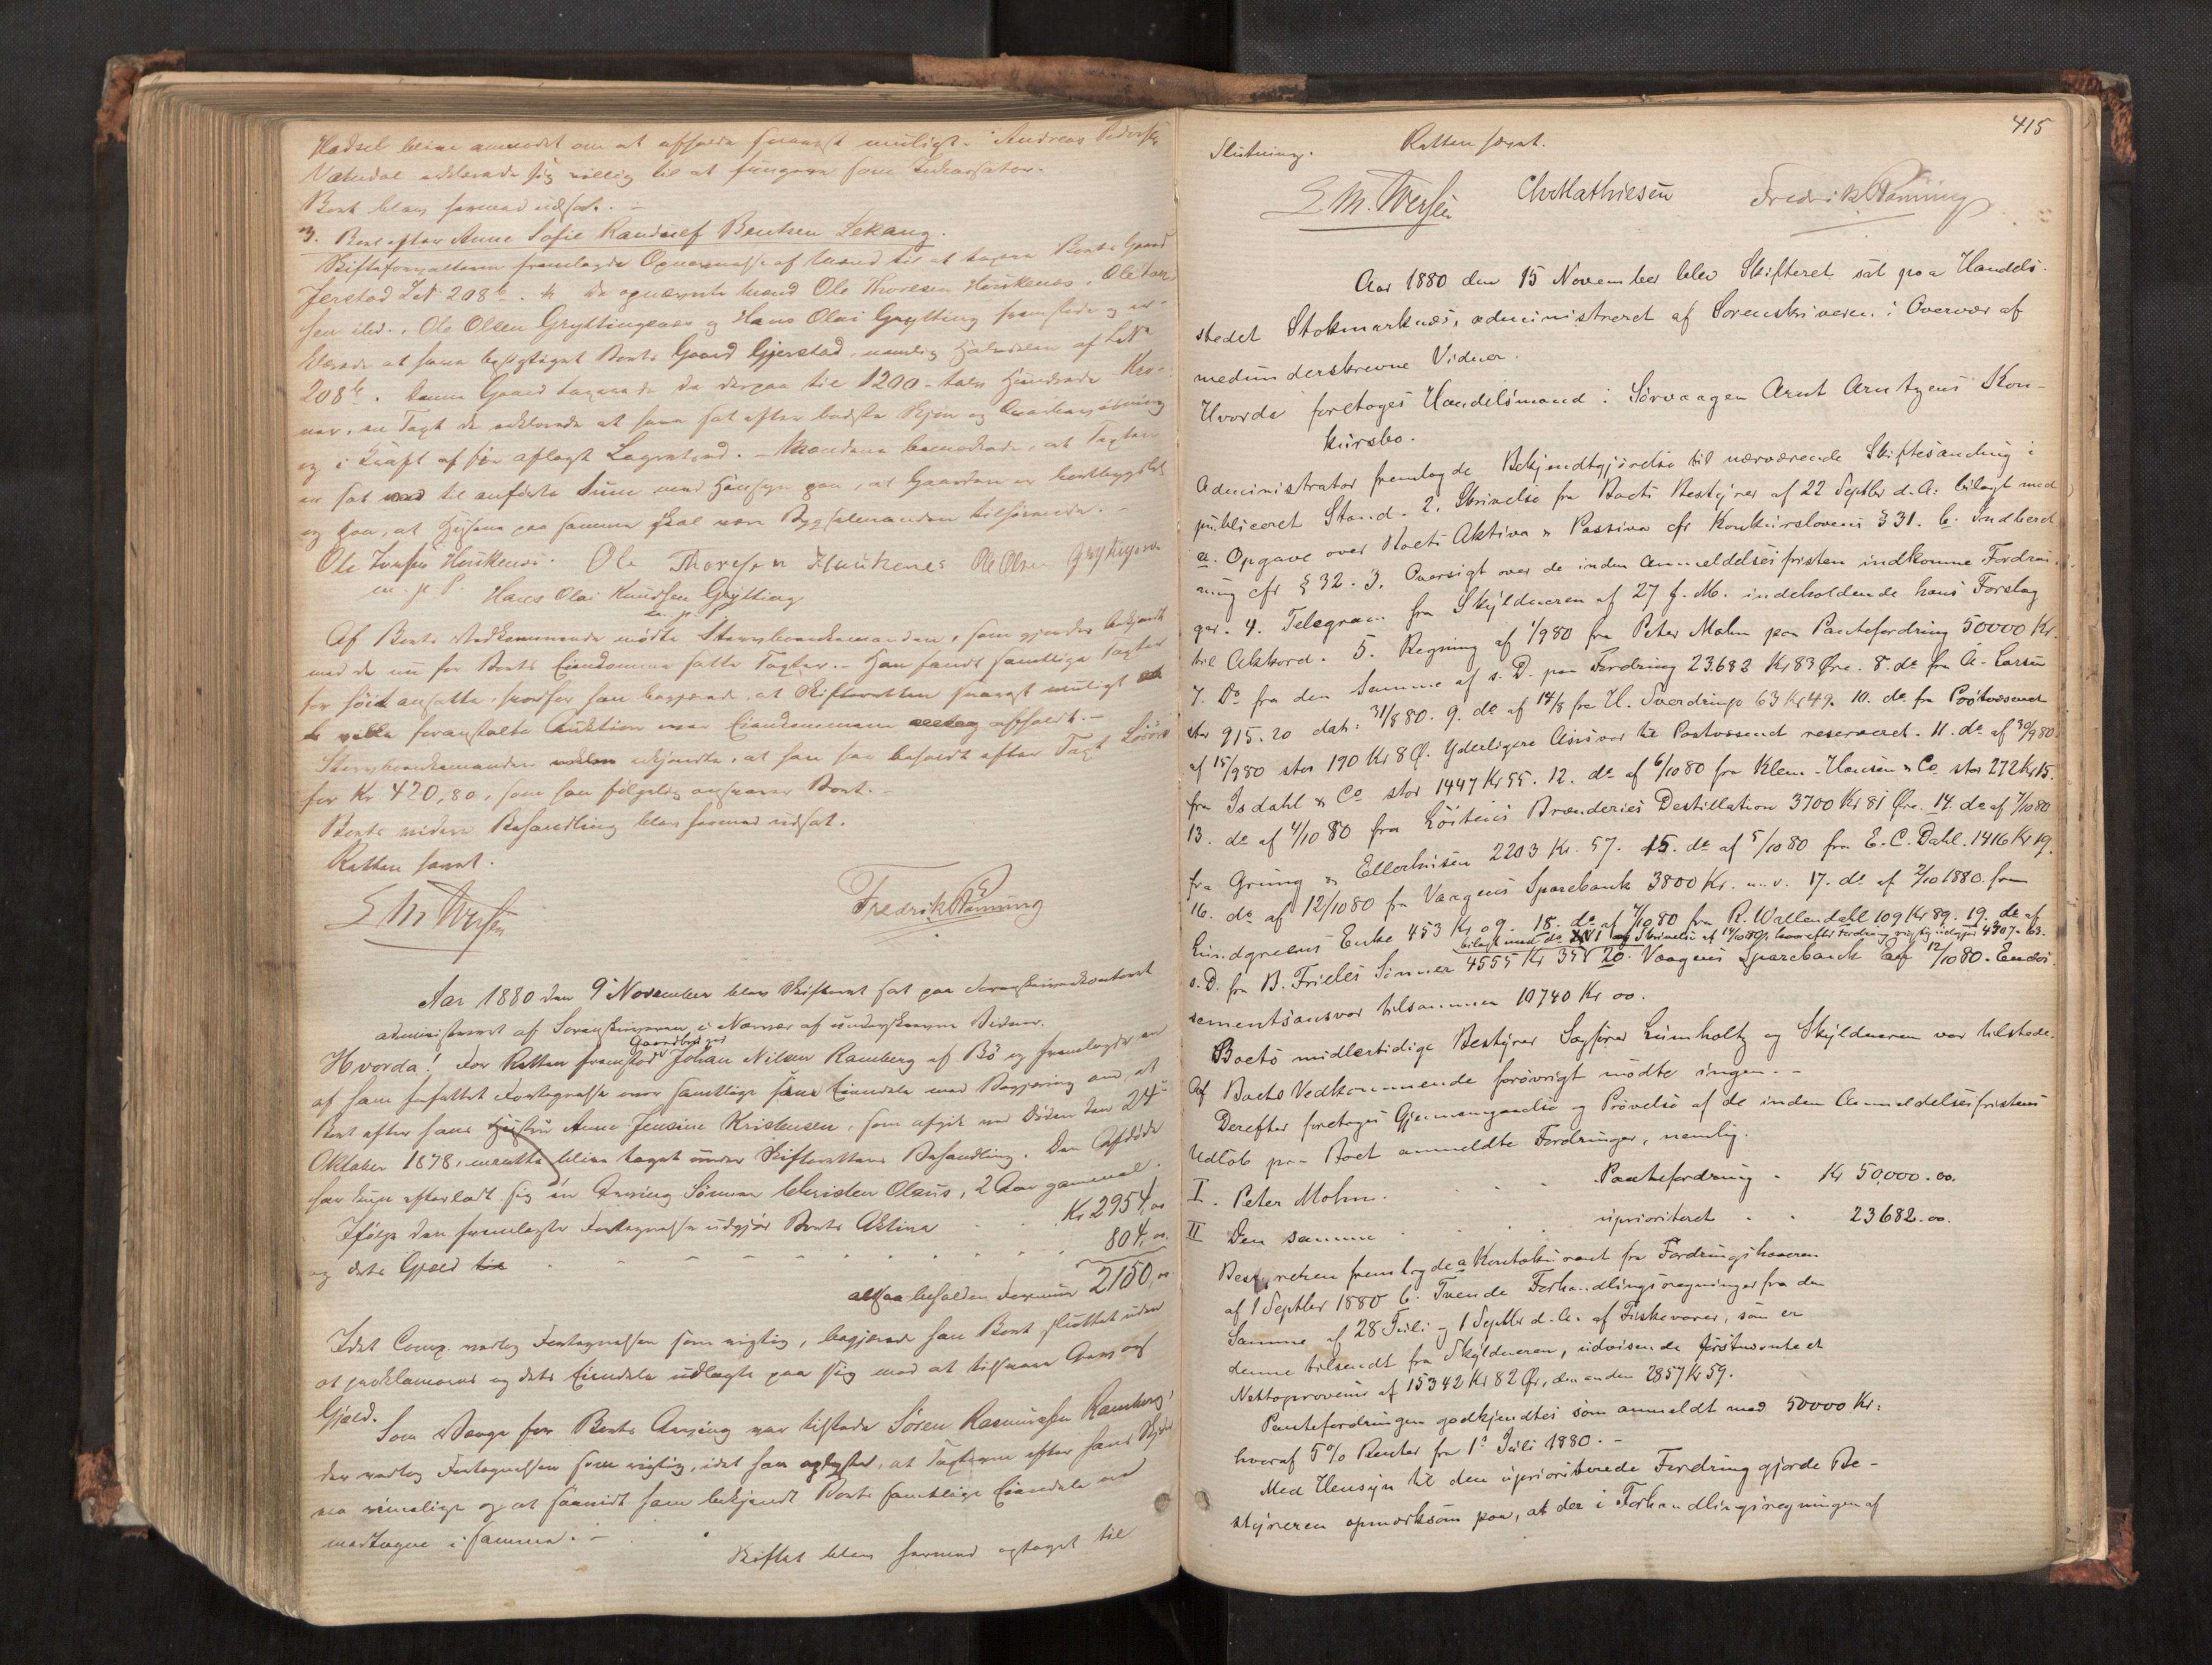 Hadsel blive anmodet om at afholde snarest muligt. Andreas Pedersen
Vatndal erklærede sig villig til at fungere som Inkassator.
Boet blev hermed udsat. –
3. Boet efter Anne Sofie Randulf Bentsen Lekang.
Skifteforvalteren fremlagde Opnævnelse af Mænd til at taxere Boets Gaard
Jerstad LN 208b. De opnævnte Mænd Ole Thoresen Haukenes, Ole Iver-
sen ibd., Ole Olsen Gryttingenes og Hans Olai Grytting fremstode og er-
klærede at have besigtiget Boets Gaard Gjerstad, nemlig Halvdelen af LN
208b. Denne Gaard taxerede de derpaa til 1200 – tolv Hundrede Kro-
ner, en Taxt de erklærede at have sat efter bedste Skjøn og Overbevisning
og i Kraft af før aflagt Lagretsed. – Mændene bemærkede, at Taxten
er sat til anførte Sum med Hensyn paa, at Gaarden er bortbygslet
og paa, at Husene paa samme skal være Bygselmanden tilhørende. –
Ole Iversen Haukenes. Ole Thoresen Haukenes Ole Olsen Gryttingenes
m. p. P. Hans Olai Knudsen Grytting
m. p. P.
Af Boets Vedkommende mødte Stervboenkemanden, som gjordes bekjendt
med de nu for Boets Eiendomme satte Taxter. – Han fandt samtlige Taxter
for høit ansatte, hvorfor han begjærede, at Skifteretten snarest muligt
vilde foranstalte Auktion over Eiendommene afholdt. –
Stervboenkemanden erkjendte, at han har beholdt efter Taxt Løsøre
for Kr. 420,80, som han følgelig ansvarer Boet. –
Boets videre Behandling blev hermed udsat.
Retten hævet.
Fredrik Rønning
Aar 1880 den 9 November blev Skifteret sat paa Sorenskriverkontoret
administreret af Sorenskriveren i Nærvær af underskrevne Vidner.
Hvorda! for Retten fremstod Gaardbruger Johan Nilsen Ramberg af Bø og fremlagde en
af ham forfattet Fortegnelse over samtlige sine Eiendele med Begjæring om, at
Boet efter hans Hustru Anne Jensine Kristensen, som afgik ved Døden den 24
Oktober 1878, maatte blive taget under Skifterettens Behandling. Den Afdøde
har kun efterladt sig én Arving Sønnen Christen Olaus, 2 Aar gammel.
Ifølge den fremlagte Fortegnelse udgjør Boets Aktiva Kr 2954,00
og dets Gjæld 804,00
altsaa beholden Formue 2150,00
Idet Comp. vedtog Fortegnelsen som rigtig, begjærede han Boet sluttet uden
at proklameres og dets Eiendele udlagte paa sig mod at tilsvare Arv og
Gjæld.
Som Værge for Boets Arving var tilstede Søren Rasmussen Ramberg,
der vedtog Fortegnelsen som rigtig, idet han oplyste, at Taxterne efter hans Skjøn
var rimelige og at saavidt ham bekjendt Boets samtlige Eiendele var
medtagne i samme. –
Skiftet blev hermed optaget til
415
Slutning. Retten hævet.
Chr Mathiesen Fredrik Rønning
Aar 1880 den 15 November blev Skifteret sat paa Handels-
stedet Stokmarknæs, administreret af Sorenskriveren i Overvær af
medunderskrevne Vidner.
Hvorda foretoges Handelsmand i Sørvaagen Arnt Arntzens Kon-
kursbo.
Administrator fremlagde Bekjendtgjørelse til nærværende Skiftesamling i
publiceret Stand. 2. Skrivelse fra Boets Bestyrer af 22 Septbr d. A. bilagt med
a. Opgave over Boets Aktiva & Passiva cfr Konkurslovens § 31. b. Indberet-
ning cfr § 32. 3. Oversigt over de inden Anmeldelsesfristen indkomne Fordrin-
ger. 4. Telegram fra Skyldneren af 27 f. M. indeholdende hans Forslag
til Akkord. 5. Regning af 1/9 80 fra Peter Mohn paa Pantefordring 50000 Kr.
7. Do fra den Samme af s. D. paa Fordring 23.682 Kr 83 Øre. 8. do fra A. Larsen
stor 915.20 dat: 31/8 80. 9. do af 14/8 fra H. Sverdrup 63 Kr 49. 10. do fra Postvæsenet
af 15/9 80 stor 190 Kr 8 Ø. Yderligere Ansvar til Postvæsenet reserveret. 11. do af 30/9 80
fra Isdahl & Co stor 1447 Kr 55. 12. do af 6/10 80 fra Klem. Hansen & Co stor 272 Kr 15.
13. do af 4/10 80 fra Løitens Brænderies Destillation 3700 Kr 81 Øre. 14. do af 7/10 80
fra Grung & Ellerhusen 2203 Kr. 57. 15. do af 5/10 80 fra E. C. Dahl. 1416 Kr 19.
16. do af 12/10 80 fra Vaagens Sparebank 3800 Kr. m. v. 17. do af 2/10 1880 fra
Lundgreens Enke 453 Kr 09. 18. do af 7/10 80 fra R. Wallendahl 109 Kr 89. 19. do af
bilagt med do Skrivelse af 14/10 80, hvorefter Fordring rigtig udgjør 4307.63.
s. D. fra B. Frieles Sønner 4555 Kr 35. 20. Vaagens Sparebank af 12/10 80. Endos-
sementsansvar tilsammen 10740 Kr 00.
Boets midlertidige Bestyrer Sagfører Lumholtz og Skyldneren var tilstede.
Af Boets Vedkommende forøvrigt mødte ingen. –
Derefter foretoges Gjennemgaaelse og Prøvelse af de inden Anmeldelsesfristens
Udløb paa Boet anmeldte Fordringer, nemlig.
I. Peter Mohn. Pantefordring - Kr 50,000.00.
II Den samme uprioriteret 23682.00.
Bestyreren fremlagde a Kontokurant fra Fordringshaveren
af 1 Septbr 1880 b. Tvende Forhandlingsregninger fra den
Samme af 28 Juli og 1 Septbr d. A. af Fiskevarer, som er
denne tilsendt fra Skyldneren, udvisende førstnævnte et
Nettoprovenu af 15342 Kr 82 Ør, den anden 2857 Kr 59.
Pantefordringen godkjendtes som anmeldt med 50000 Kr:
hvoraf 5% Renter fra 1s Juli 1880. –
Med Hensyn til den uprioriterede Fordring gjorde Be-
styreren opmærksom paa, at der i Forhandlingsregningen af